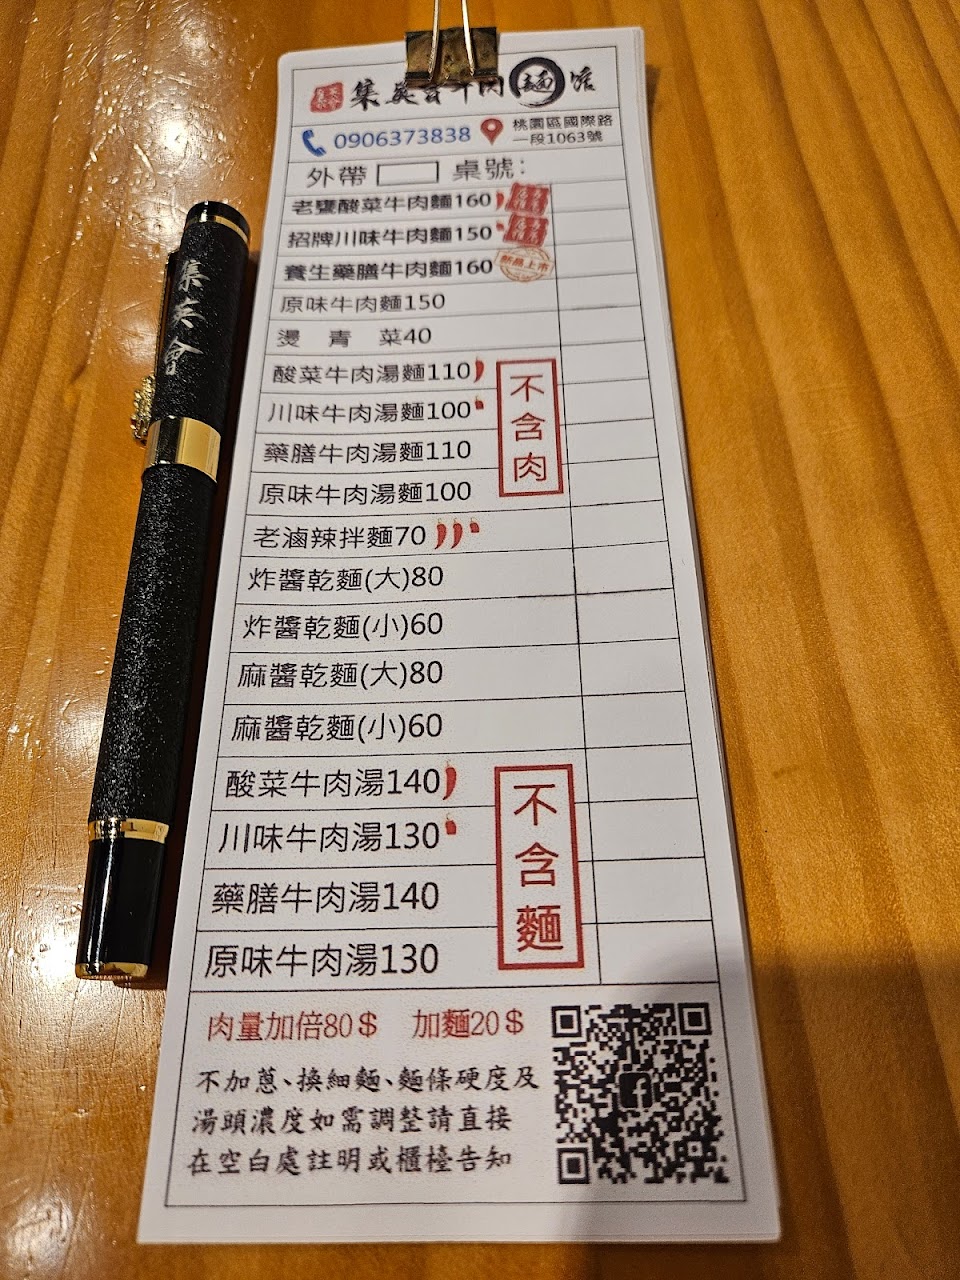 集英會牛肉麵馆
0906373838
桃園區國際路
一段1063號
外帶 桌號:
老甕酸菜牛肉麵160
招牌川味牛肉麵150
養生藥膳牛肉麵160 新品上市
原味牛肉麵150
燙 青 菜40
酸菜牛肉湯麵110
川味牛肉湯麵100
藥膳牛肉湯麵110
原味牛肉湯麵100
不含肉
老滷辣拌麵70
炸醬乾麵(大)80
炸醬乾麵(小)60
麻醬乾麵(大)80
麻醬乾麵(小)60
酸菜牛肉湯140
川味牛肉湯130
藥膳牛肉湯140
原味牛肉湯130
不含麵
肉量加倍80$ 加麵20$
不加蔥、換細麵、麵條硬度及
湯頭濃度如需調整請直接
在空白處註明或櫃檯告知
集英會